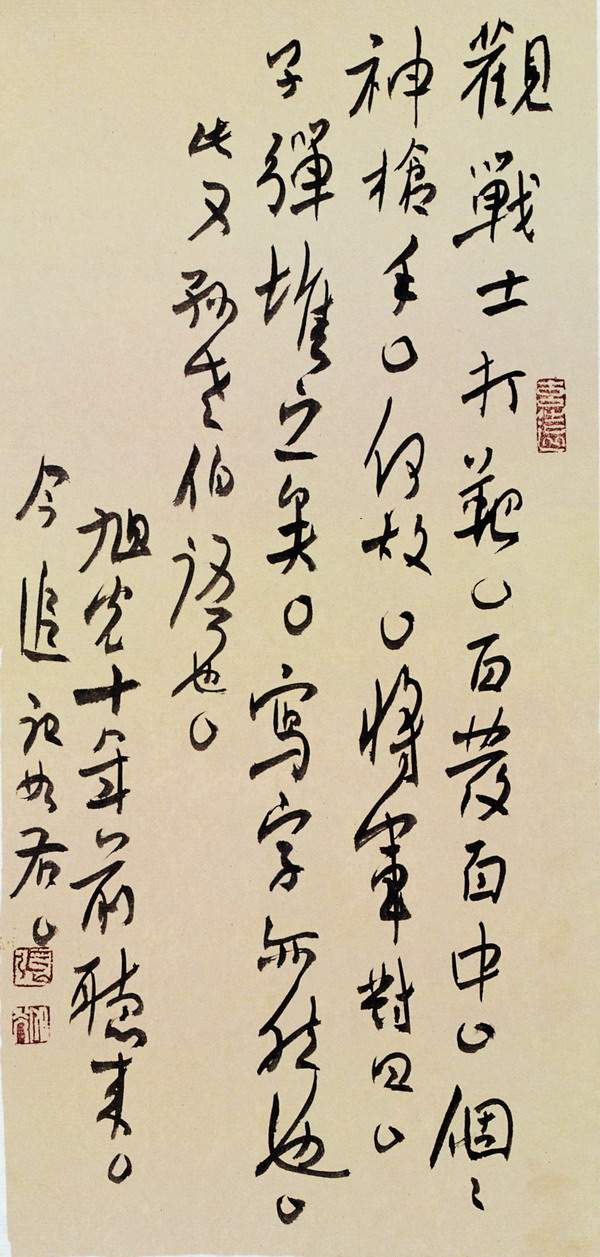 觀戰士打靶。百發百中。個々
神槍手。何故。將軍對曰。
子彈堆之矣。寫字亦然也。
此又孫老伯語也。
旭光十年前聽來。
今追記如右。